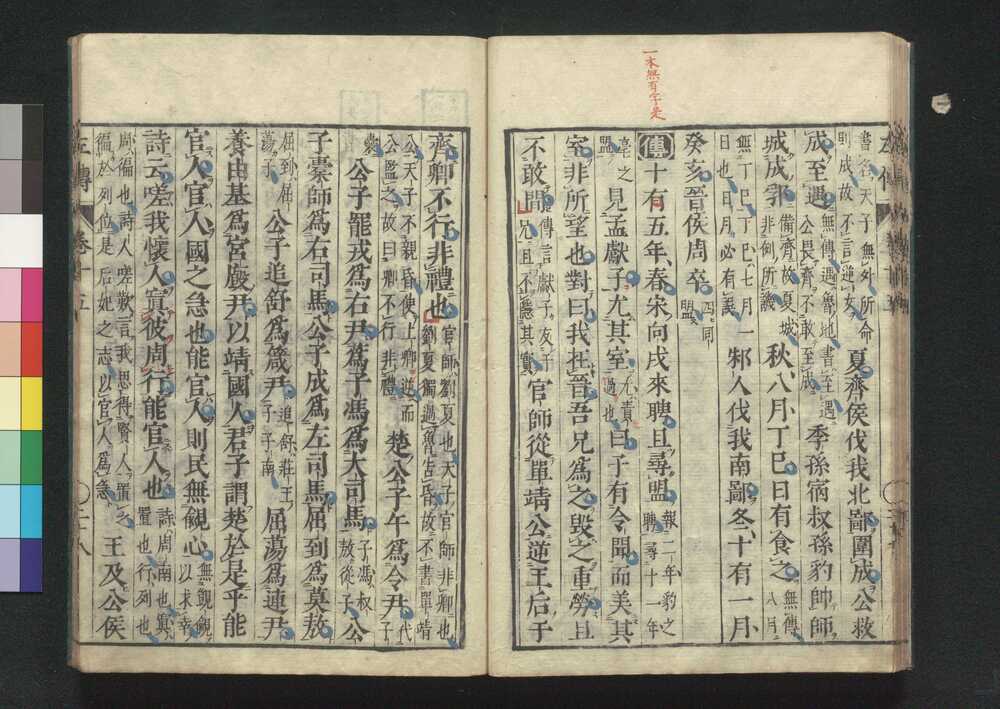 一本無有字是
書名天子無外所命則成故不言逆女夏齊侯伐我北鄙圍成公救
成至遇無傳遇魯地書至遇公畏齊不敢至成季孫宿叔孫豹帥師
城成郛備齊故夏城非例所譏秋八月丁巳日有食之無傳八月
無丁巳丁巳七月一日也日月必有誤邾人伐我南鄙冬十有一月
癸亥晉侯周卒四同盟
傳十有五年春宋向戌來聘且尋盟報二年豹之聘尋十一年
亳之盟見孟獻子尤其室尤責過也曰子有令聞而美其
室非所望也對曰我在晉吾兄爲之毀之重勞且
不敢間傳言獻子友于兄且不隱其實官師從單靖公逆王后于
齊卿不行非禮也官師劉夏也天子官師非卿也劉夏獨過魯告昏故不書單靖
公天子不親昏使上卿逆而公監之故曰卿不行非禮楚公子午爲令尹代子囊
公子罷戎爲右尹蔿子馮爲大司馬子馮叔敖從子公
子橐師爲右司馬公子成爲左司馬屈到爲莫敖
屈到屈蕩子公子追舒爲箴尹追舒莊王子子南屈蕩爲連尹
養由基爲宮廄尹以靖國人君子謂楚於是乎能
官人官人國之急也能官人則民無覦心無覬覦以求幸
詩云嗟我懷人寘彼周行能官人也詩周南也寘置也行列也
周徧也詩人嗟歎言我思得賢人置之徧於列位是后妃之志以官人爲急王及公侯
左傳 卷十五 二十八